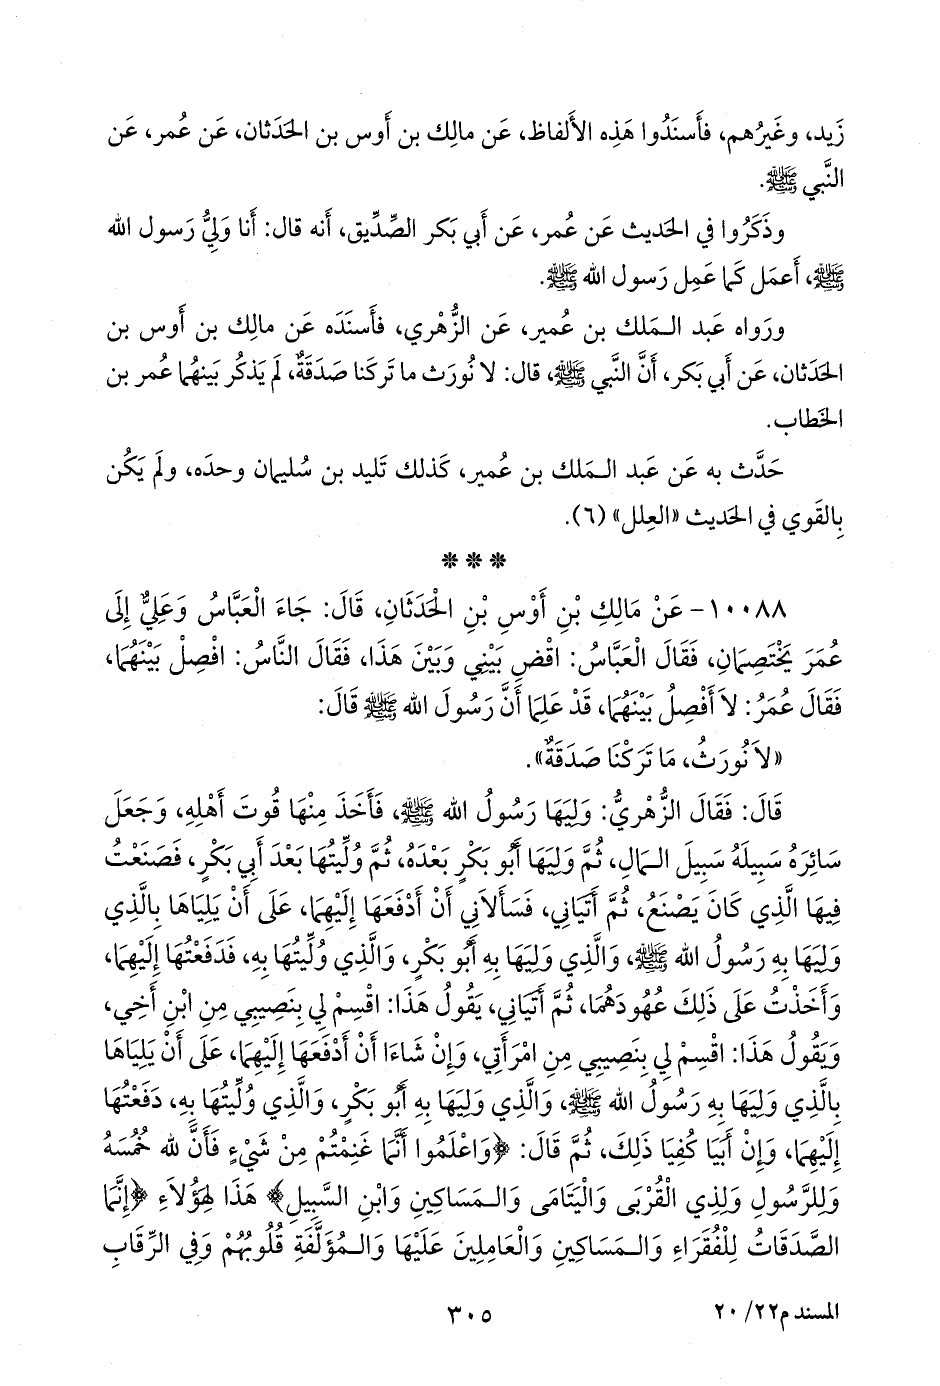 زَيد، وغَيرُهم، فأَسنَدُوا هَذِه الأَلفاظ، عَن مالِك بن أَوس بن الحَدَثان، عَن عُمر، عَن
النَّبي ﷺ.
وذَكَرُوا في الحَديث عَن عُمر، عَن أَبي بَكر الصِّدِّيق، أَنه قال: أَنا وَليُّ رَسول الله
ﷺ، أَعمَل كَما عَمِل رَسول الله ﷺ.
ورَواه عَبد الـمَلك بن عُمير، عَن الزُّهْري، فأَسنَدَه عَن مالِك بن أَوس بن
الحَدَثان، عَن أَبي بَكر، أَنَّ النَّبي ﷺ، قال: لا نُورَث ما تَركنا صَدَقَةٌ، لَم يَذكُر بَينهُما عمر بن
الخَطاب.
حَدَّث به عَن عَبد الـمَلك بن عُمير، كَذلك تَليد بن سُليمان وحدَه، ولَم يَكُن
بِالقَوي في الحَديث «العِلل» (٦).
* * *
١٠٠٨٨- عَنْ مَالِكِ بْنِ أَوْسِ بْنِ الْحَدَثَانِ، قَالَ: جَاءَ الْعَبَّاسُ وَعَلِيٌّ إِلَى
عُمَرَ يَخْتَصِمَانِ، فَقَالَ الْعَبَّاسُ: اقْضِ بَيْنِي وَبَيْنَ هَذَا، فَقَالَ النَّاسُ: افْصِلْ بَيْنَهُمَا،
فَقَالَ عُمَرُ: لاَ أَفْصِلُ بَيْنَهُمَا، قَدْ عَلِمَا أَنَّ رَسُولَ الله ﷺ قَالَ:
«لاَ نُورَثُ، مَا تَرَكْنَا صَدَقَةٌ».
قَالَ: فَقَالَ الزُّهْرِيُّ: وَلِيَهَا رَسُولُ الله ﷺ، فَأَخَذَ مِنْهَا قُوتَ أَهْلِهِ، وَجَعَلَ
سَائِرَهُ سَبِيلَهُ سَبِيلَ الـمَالِ، ثُمَّ وَلِيَهَا أَبُو بَكْرٍ بَعْدَهُ، ثُمَّ وُلِّيتُهَا بَعْدَ أَبِي بَكْرٍ، فَصَنَعْتُ
فِيهَا الَّذِي كَانَ يَصْنَعُ، ثُمَّ أَتَيَانِي، فَسَأَلاَنِي أَنْ أَدْفَعَهَا إِلَيْهِمَا، عَلَى أَنْ يَلِيَاهَا بِالَّذِي
وَلِيَهَا بِهِ رَسُولُ الله ﷺ، وَالَّذِي وَلِيَهَا بِهِ أَبُو بَكْرٍ، وَالَّذِي وُلِّيتُهَا بِهِ، فَدَفَعْتُهَا إِلَيْهِمَا،
وَأَخَذْتُ عَلَى ذَلِكَ عُهُودَهُمَا، ثُمَّ أَتَيَانِي، يَقُولُ هَذَا: اقْسِمْ لِي بِنَصِيبِي مِنِ ابْنِ أَخِي،
وَيَقُولُ هَذَا: اقْسِمْ لِي بِنَصِيبِي مِنِ امْرَأَتِي، وَإِنْ شَاءَا أَنْ أَدْفَعَهَا إِلَيْهِمَا، عَلَى أَنْ يَلِيَاهَا
بِالَّذِي وَلِيَهَا بِهِ رَسُولُ الله ﷺ، وَالَّذِي وَلِيَهَا بِهِ أَبُو بَكْرٍ، وَالَّذِي وُلِّيتُهَا بِهِ، دَفَعْتُهَا
إِلَيْهِمَا، وَإِنْ أَبَيَا كُفِيَا ذَلِكَ، ثُمَّ قَالَ: ﴿وَاعْلَمُوا أَنَّمَا غَنِمْتُمْ مِنْ شَيْءٍ فَأَنَّ للهِ خُمُسَهُ
وَلِلرَّسُولِ وَلِذِي الْقُرْبَى وَالْيَتَامَى وَالـمَسَاكِينِ وَابْنِ السَّبِيلِ﴾ هَذَا لِهَؤُلاَءِ ﴿إِنَّمَا
الصَّدَقَاتُ لِلْفُقَرَاءِ وَالـمَسَاكِينِ وَالْعَامِلِينَ عَلَيْهَا وَالـمُؤَلَّفَةِ قُلُوبُهُمْ وَفِي الرِّقَابِ
المسند م٢٢/ ٢٠
٣٠٥